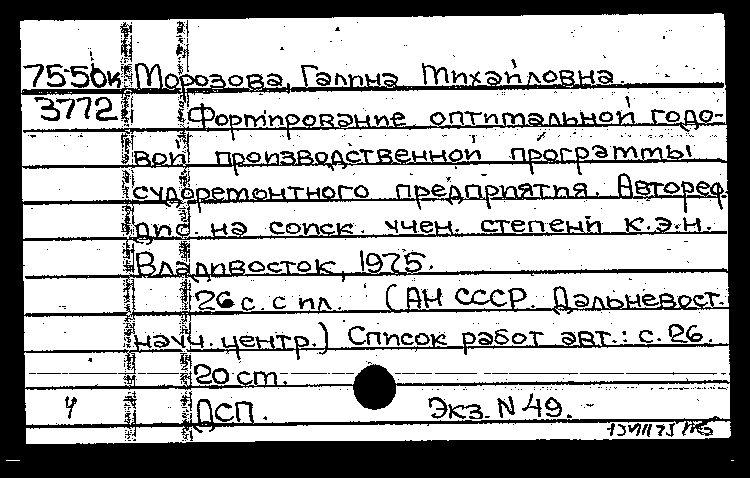 75-50к Морозова, Галина Михайловна.
3772 Формирование оптимальной годо-
вой производственной программы
судоремонтного предприятия. Автореф.
дис. на соиск. учен. степени к.э.н.
Владивосток, 1975.
26 с. с ил. (АН СССР. Дальневост.
науч. центр.) Список работ авт.: с. 26.
20 см.
ч ДСП. Экз. N 49.